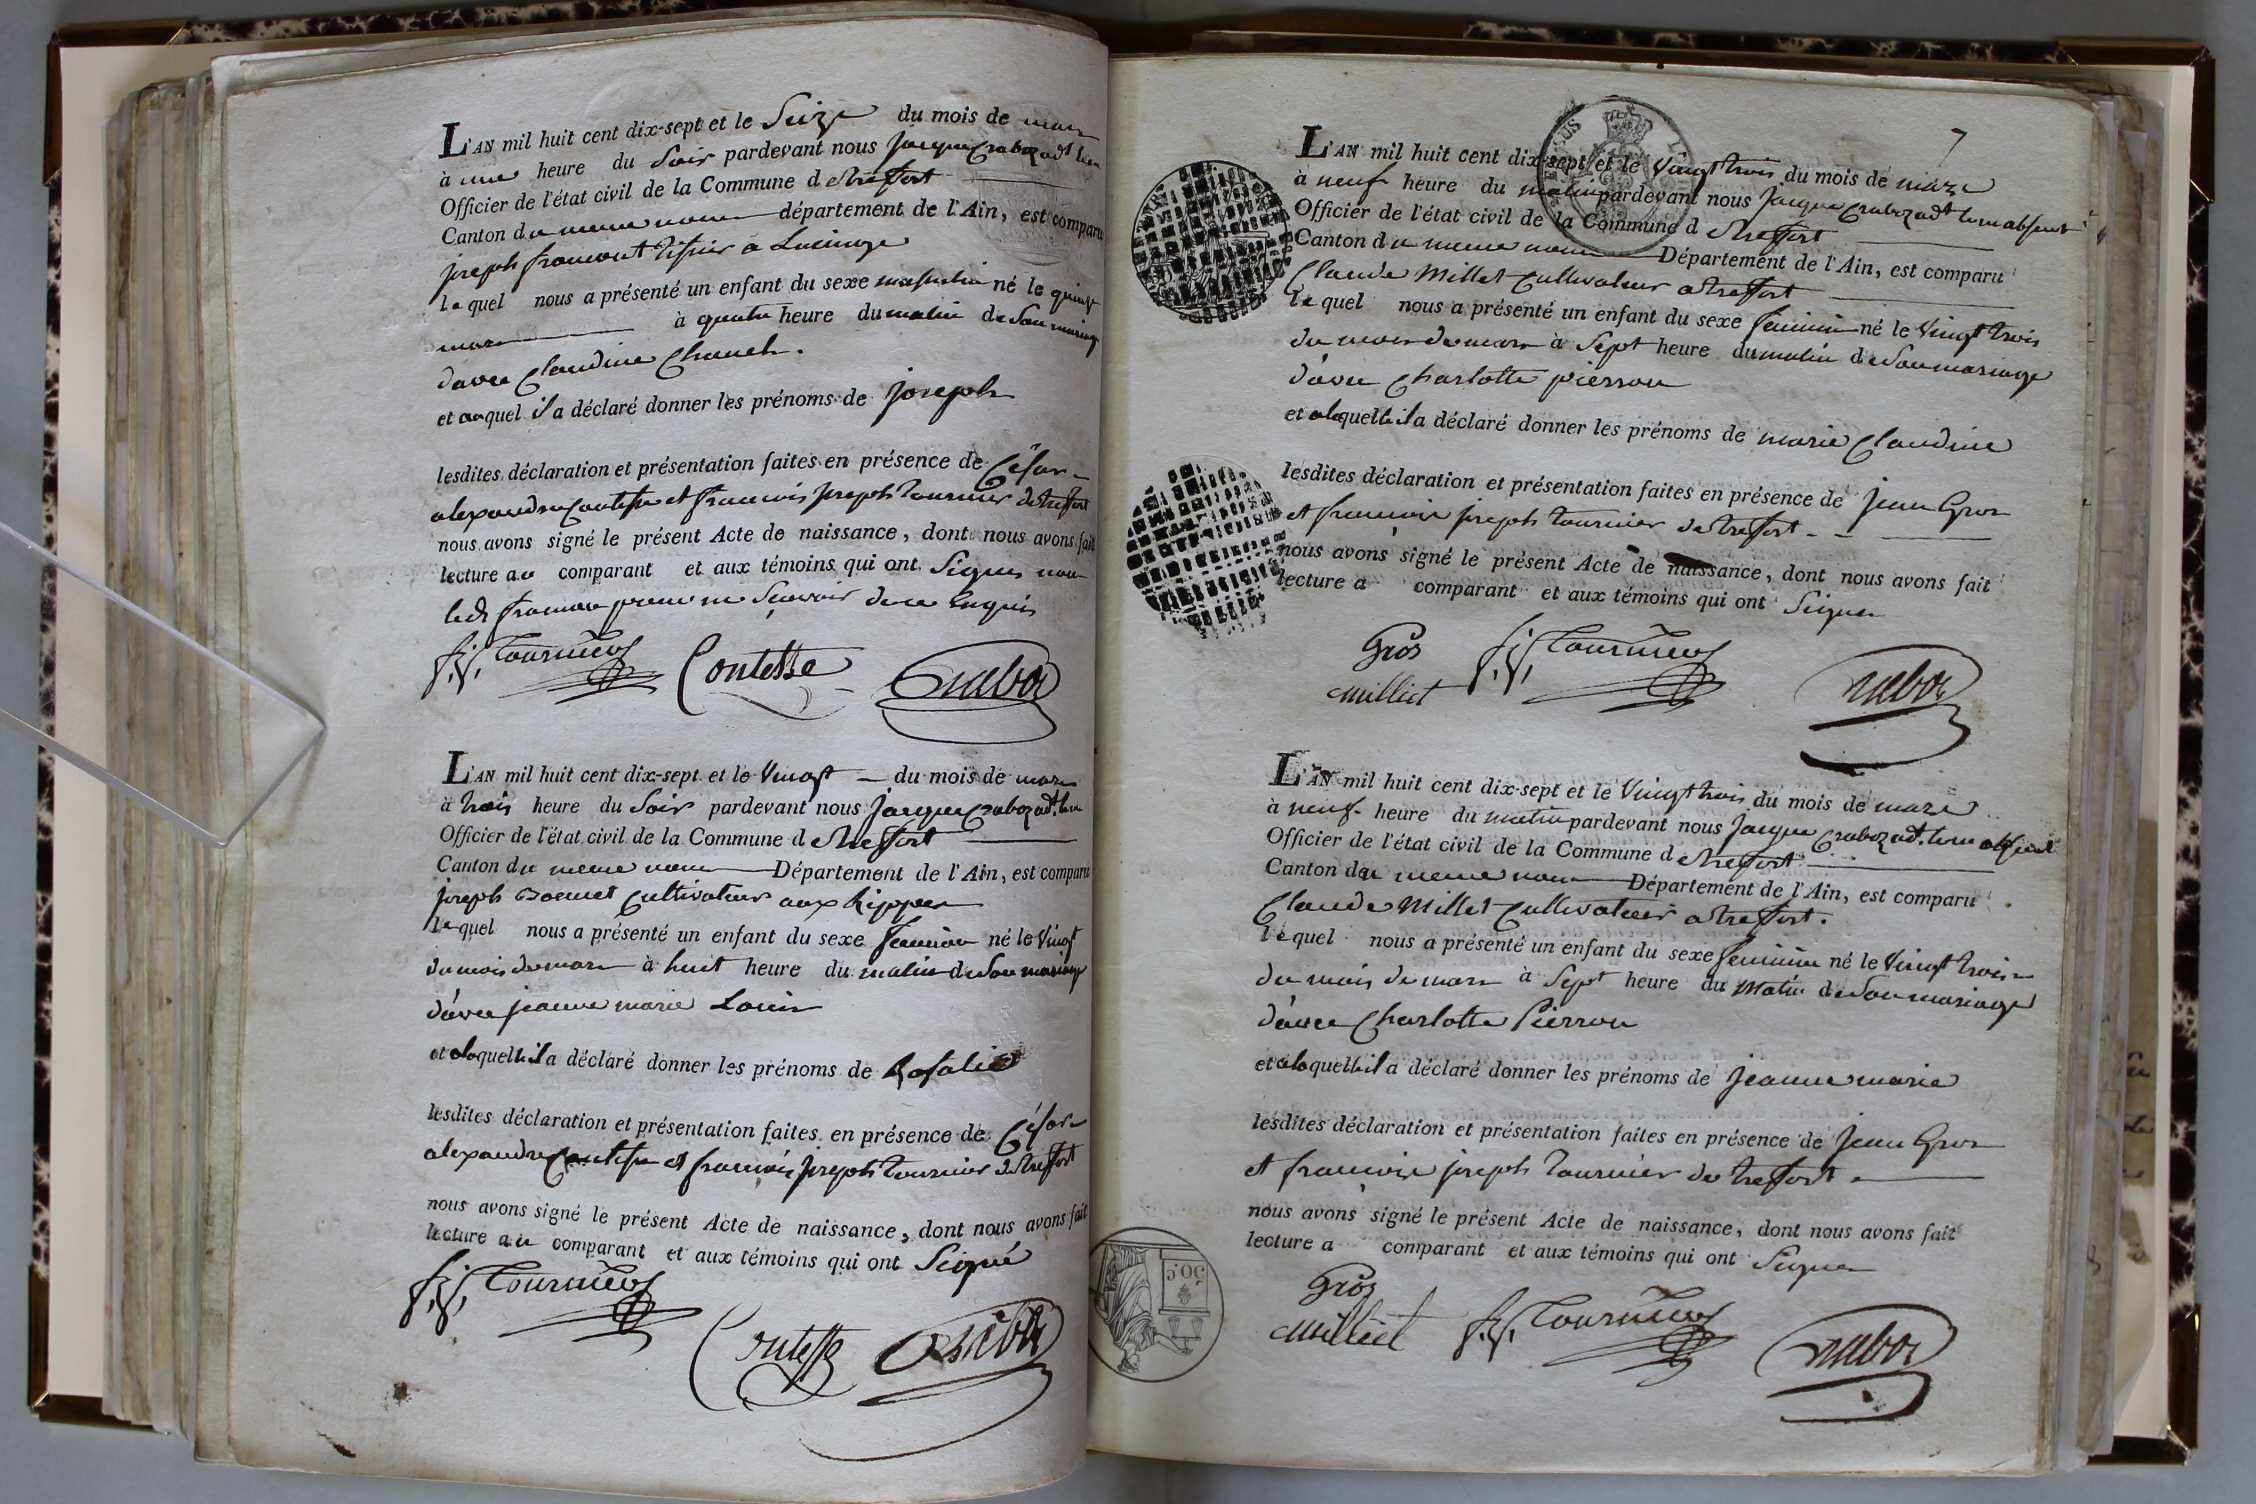 L'AN mil huit cent dix-sept et le Seize du mois de mars
à une heure du Soir pardevant nous Jacque Craboz adt
Officier de l'état civil de la Commune d etreffort
Canton du meme nom département de l'Ain, est comparu
joseph
le quel nous a présenté un enfant du sexe masculin né le quinze
mars à quatre heure du matin de Son mariage
d'avec Claudine
et auquel il a déclaré donner les prénoms de joseph
lesdites déclaration et présentation faites en présence de César
alexandre Contesse et francois joseph tournier de treffort
nous avons signé le présent Acte de naissance, dont nous avons fait
lecture au comparant et aux témoins qui ont Signes non
ledt pour ne Scavoir de ce Enquis
f. j. Tournier Contesse Craboz
L'AN mil huit cent dix-sept et le Vingt du mois de mars
à trois heure du Soir pardevant nous Jacque Craboz adt.
Officier de l'état civil de la Commune d etreffort
Canton du meme nom Département de l'Ain, est comparu
joseph cultivateur aux
le quel nous a présenté un enfant du sexe feminin né le Vingt
du mois de mars à huit heure du matin de Son mariage
d'avec jeanne marie Louis
et a laquelle il a déclaré donner les prénoms de Rosalie
lesdites déclaration et présentation faites en présence de César
alexandre Contesse et francois joseph tournier de treffort
nous avons signé le présent Acte de naissance, dont nous avons fait
lecture au comparant et aux témoins qui ont Signé
f. j. Tournier
Contesse Craboz
7
L'AN mil huit cent dix-sept et le Vingt trois du mois de mars
à neuf heure du matin pardevant nous Jacque Craboz adt absent
Officier de l'état civil de la Commune d etreffort
Canton du meme nom Département de l'Ain, est comparu
Claude Millet Cultivateur a treffort
le quel nous a présenté un enfant du sexe feminin né le Vingt trois
du mois de mars à Sept heure du matin de Son mariage
d'avec Charlotte pierron
et a laquelle il a déclaré donner les prénoms de marie Claudine
lesdites déclaration et présentation faites en présence de Jean Gros
et francois joseph tournier de treffort
nous avons signé le présent Acte de naissance, dont nous avons fait
lecture a comparant et aux témoins qui ont Signer
Gros f. j. Tournier
milliet Craboz
L'AN mil huit cent dix-sept et le Vingt trois du mois de mars
à neuf heure du matin pardevant nous Jacque Craboz adt. absent
Officier de l'état civil de la Commune d etreffort
Canton du meme nom Département de l'Ain, est comparu
Claude Millet Cultivateur a treffort.
le quel nous a présenté un enfant du sexe feminin né le Vingt trois
du mois de mars à Sept heure du Matin de Son mariage
d'avec Charlotte Pierron
et a laquelle il a déclaré donner les prénoms de Jeanne marie
lesdites déclaration et présentation faites en présence de Jean Gros
et francois joseph tournier de treffort
nous avons signé le présent Acte de naissance, dont nous avons fait
lecture a comparant et aux témoins qui ont Signer
Gros
milliet f. j. Tournier Craboz
50 C.